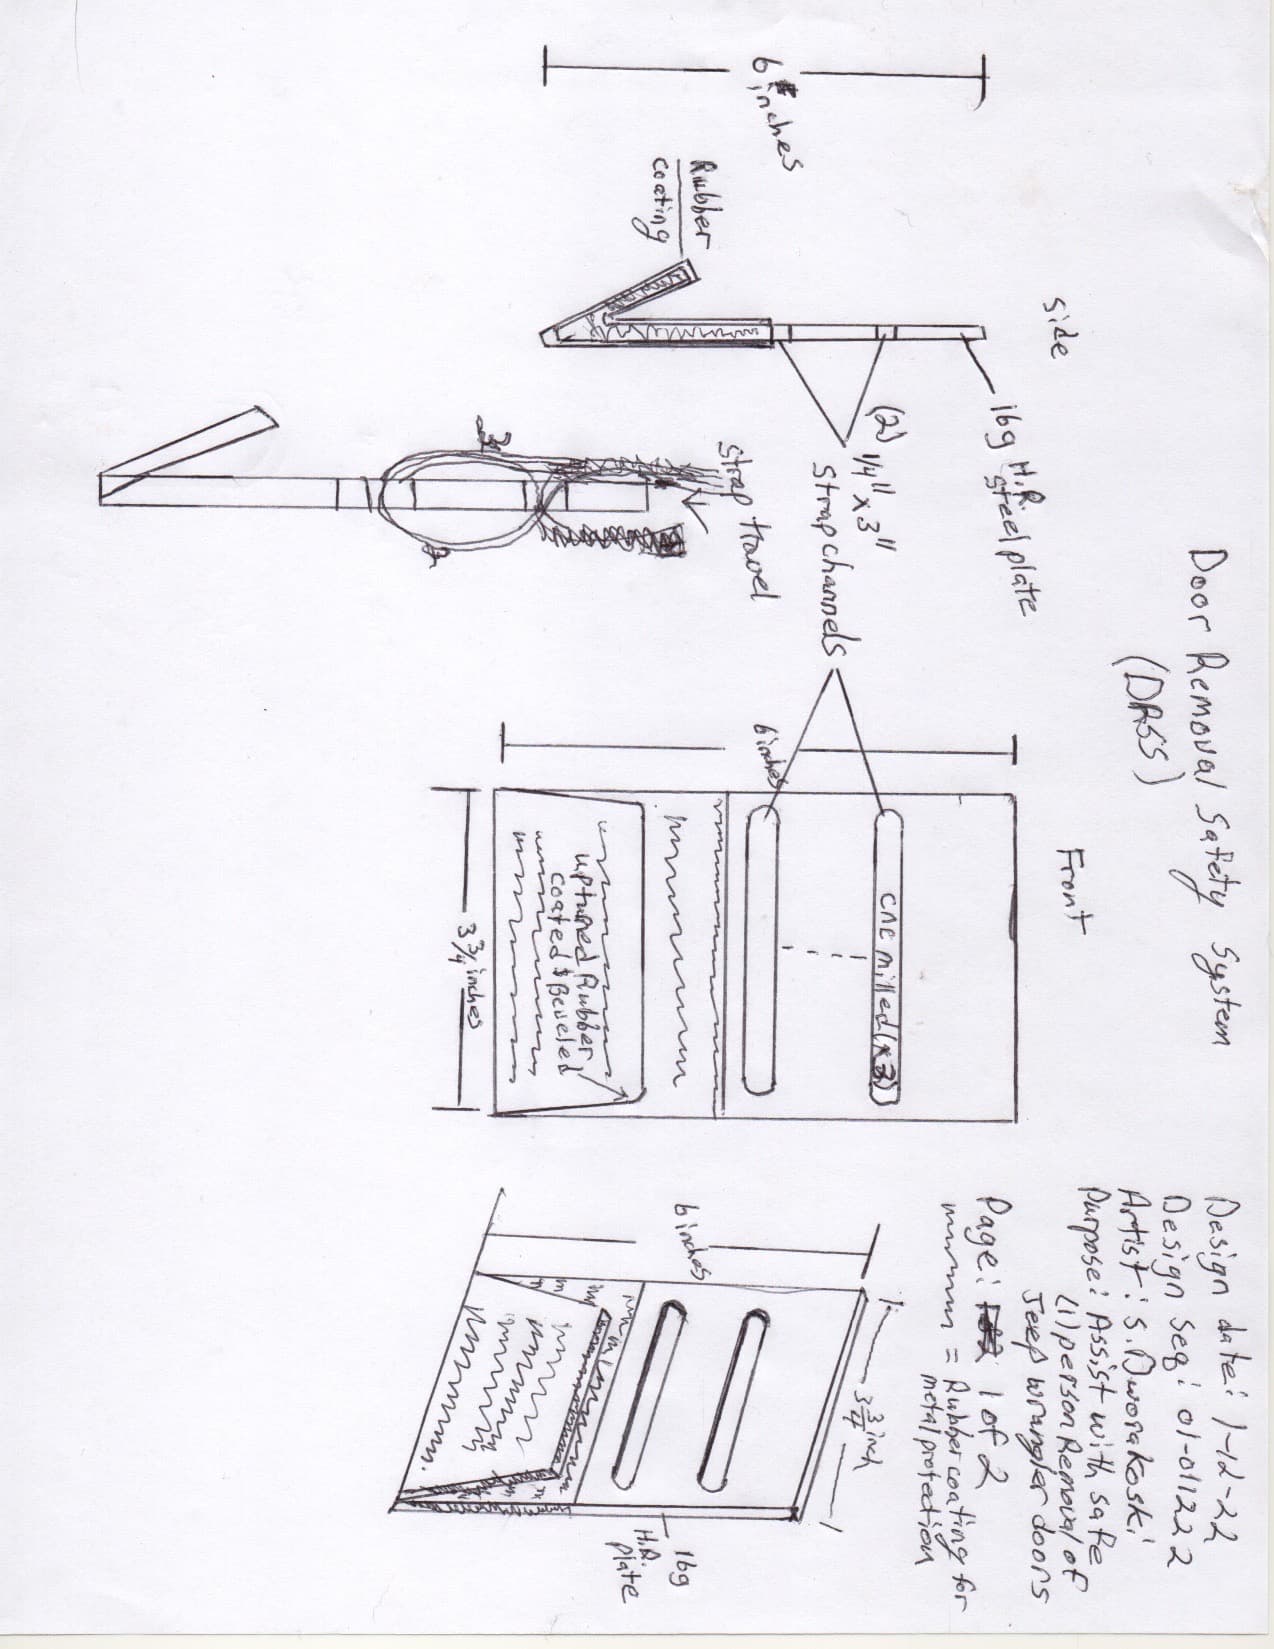 Door Removal Safety System
(DRSS)
Design date: 1-12-22
Design seq: 01-011222
Artist: S. Dworakoski
Purpose: Assist with safe
(1) person Removal of
Jeep wrangler doors
Page: 1 of 2
= Rubber coating for
metal protection
side
Front
6
inches
Rubber
coating
16g H.R.
steel plate
(2) 1/4" x 3"
strap channels
strap travel
6 inches
CNC milled (x2)
upturned Rubber
coated & Beveled
3 3/4 inches
6 inches
3 3/4 inch
16g
H.R.
plate